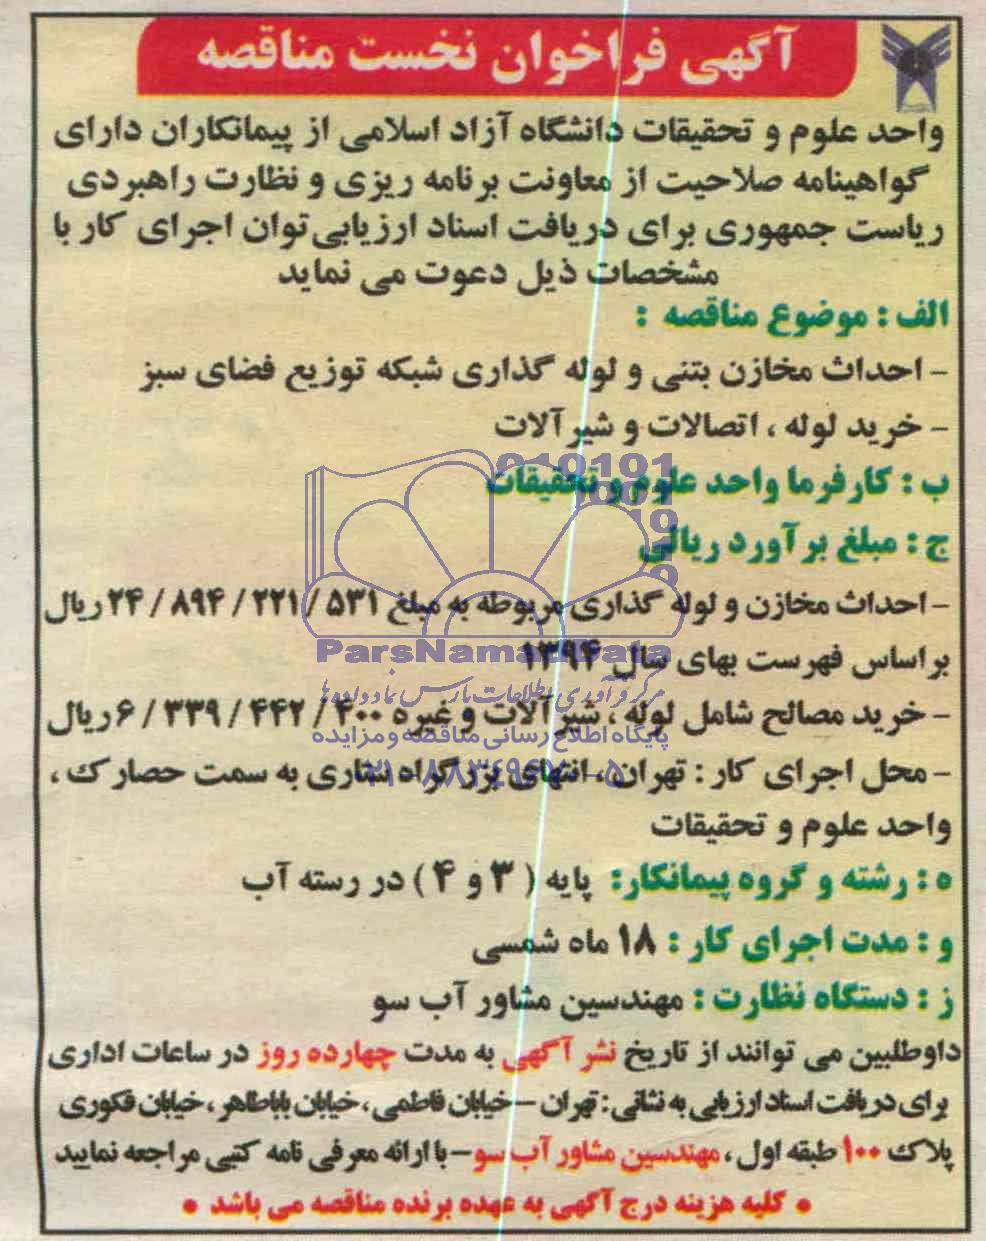 آگهی فراخوان نخست مناقصه
واحد علوم و تحقیقات دانشگاه آزاد اسلامی از پیمانکاران دارای
گواهینامه صلاحیت از معاونت برنامه ریزی و نظارت راهبردی
ریاست جمهوری برای دریافت اسناد ارزیابی توان اجرای کار با
مشخصات ذیل دعوت می نماید
الف : موضوع مناقصه :
- احداث مخازن بتنی و لوله گذاری شبکه توزیع فضای سبز
- خرید لوله ، اتصالات و شیرآلات
ب : کارفرما واحد علوم و تحقیقات
ج : مبلغ برآورد ریالی
- احداث مخازن و لوله گذاری مربوطه به مبلغ ۵۳۱ / ۲۲۱ / ۸۹۴ / ۲۴ ریال
براساس فهرست بهای سال ۱۳۹۴
ParsNamadData
مرکز فرآوری اطلاعات پارس نماد داده ها
- خرید مصالح شامل لوله ، شیرآلات و غیره ۴۰۰ / ۴۴۲ / ۳۳۹ / ۶ ریال
پایگاه اطلاع رسانی مناقصه و مزایده
- محل اجرای کار : تهران ، انتهای بزرگراه ستاری به سمت حصارک ،
واحد علوم و تحقیقات
ه : رشته و گروه پیمانکار: پایه ( ۳ و ۴ ) در رسته آب
و : مدت اجرای کار : ۱۸ ماه شمسی
ز : دستگاه نظارت : مهندسین مشاور آب سو
داوطلبین می توانند از تاریخ نشر آگهی به مدت چهارده روز در ساعات اداری
برای دریافت اسناد ارزیابی به نشانی : تهران – خیابان فاطمی ، خیابان باباطاهر ، خیابان فکوری
پلاک ۱۰۰ طبقه اول ، مهندسین مشاور آب سو – با ارائه معرفی نامه کتبی مراجعه نمایید
* کلیه هزینه درج آگهی به عهده برنده مناقصه می باشد *